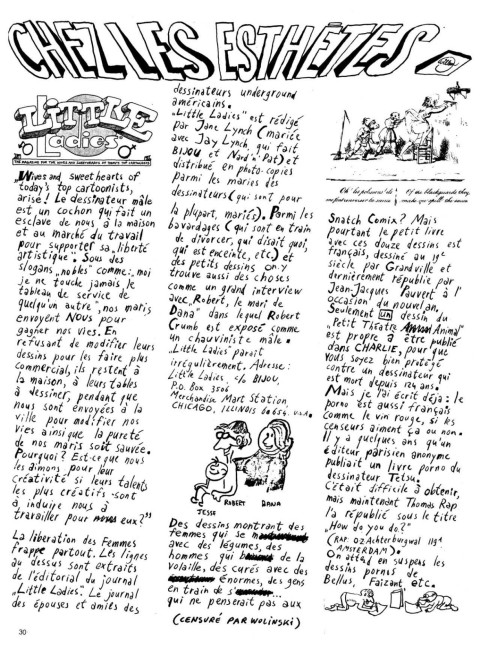 CHEZ LES ESTHÈTES
Little
Ladies
THE MAGAZINE FOR THE WIVES AND SWEETHEARTS OF TODAY'S TOP CARTOONISTS
„Wives and sweethearts of
today's top cartoonists,
arise! Le dessinateur mâle
est un cochon qui fait un
esclave de nous à la maison
et au marché du travail
pour supporter sa „liberté
artistique". Sous des
slogans „nobles" comme: „moi
je ne touche jamais le
tableau de service de
quelqu'un autre", nos maris
envoyent NOUS pour
gagner nos vies. En
refusant de modifier leurs
dessins pour les faire plus
commercial, ils restent à
la maison, à leurs tables
à dessiner, pendant que
nous sont envoyées à la
ville pour modifier nos
vies ainsi que la pureté
de nos maris soit sauvée.
Pourquoi? Est-ce que nous
les aimons pour leur
créativité si leurs talents
les plus créatifs sont
à induire nous à
travailler pour eux?"
La libération des Femmes
frappe partout. Les lignes
au dessus sont extraits
de l'éditorial du journal
„Little Ladies". Le journal
des épouses et amies des
30
dessinateurs underground
américains.
„Little Ladies" est rédigé
par Jane Lynch (mariée
avec Jay Lynch, qui fait
BIJOU et Nard 'n' Pat) et
distribué en photo-copies
parmi les maries des
dessinateurs (qui sont pour
la plupart, mariés). Parmi les
bavardages (qui sont en train
de divorcer, qui disait quoi,
qui est enceinte, etc) et
des petits dessins on y
trouve aussi des choses
comme un grand interview
avec „Robert, le mari de
Dana" dans lequel Robert
Crumb est exposé comme
un chauviniste mâle.
„Little Ladies" parait
irrégulièrement. Adresse:
Little Ladies, c/o BIJOU,
P.O. Box 3506
Merchandise Mart Station,
CHICAGO, ILLINOIS 60654. U.S.A.
JESSE
ROBERT
DANA
Des dessins montrant des
femmes qui se m
avec des légumes, des
hommes qui b de la
volaille, des curés avec des
énormes, des gens
en train de s'...
qui ne penserait pas aux
(CENSURÉ PAR WOLINSKI)
Oh! les polissons!
Snatch Comix? Mais
pourtant le petit livre
avec ces douze dessins est
français, dessiné au 19e
siècle par Grandville et
dernièrement républié par
Jean-Jacques Pauvert à l'
occasion du nouvel an.
Seulement un dessin du
„Petit Theatre Animal"
est propre à être publié
dans CHARLIE, pour que
vous soyez bien protégé
contre un dessinateur qui
est mort depuis 124 ans.
Mais je l'ai écrit déjà: le
porno est aussi français
comme le vin rouge, si les
censeurs aiment ça ou non.
Il y a quelques ans qu'un
éditeur parisien anonyme
publiait un livre porno du
dessinateur Tetsu.
C'était difficile à obtenir,
mais maintenant Thomas Rap
la républié sous le titre
„How do you do?"
(RAP. OZ Achterburgwal 119d
AMSTERDAM).
On attend en suspens les
dessins pornos de
Bellus, Faizant etc.